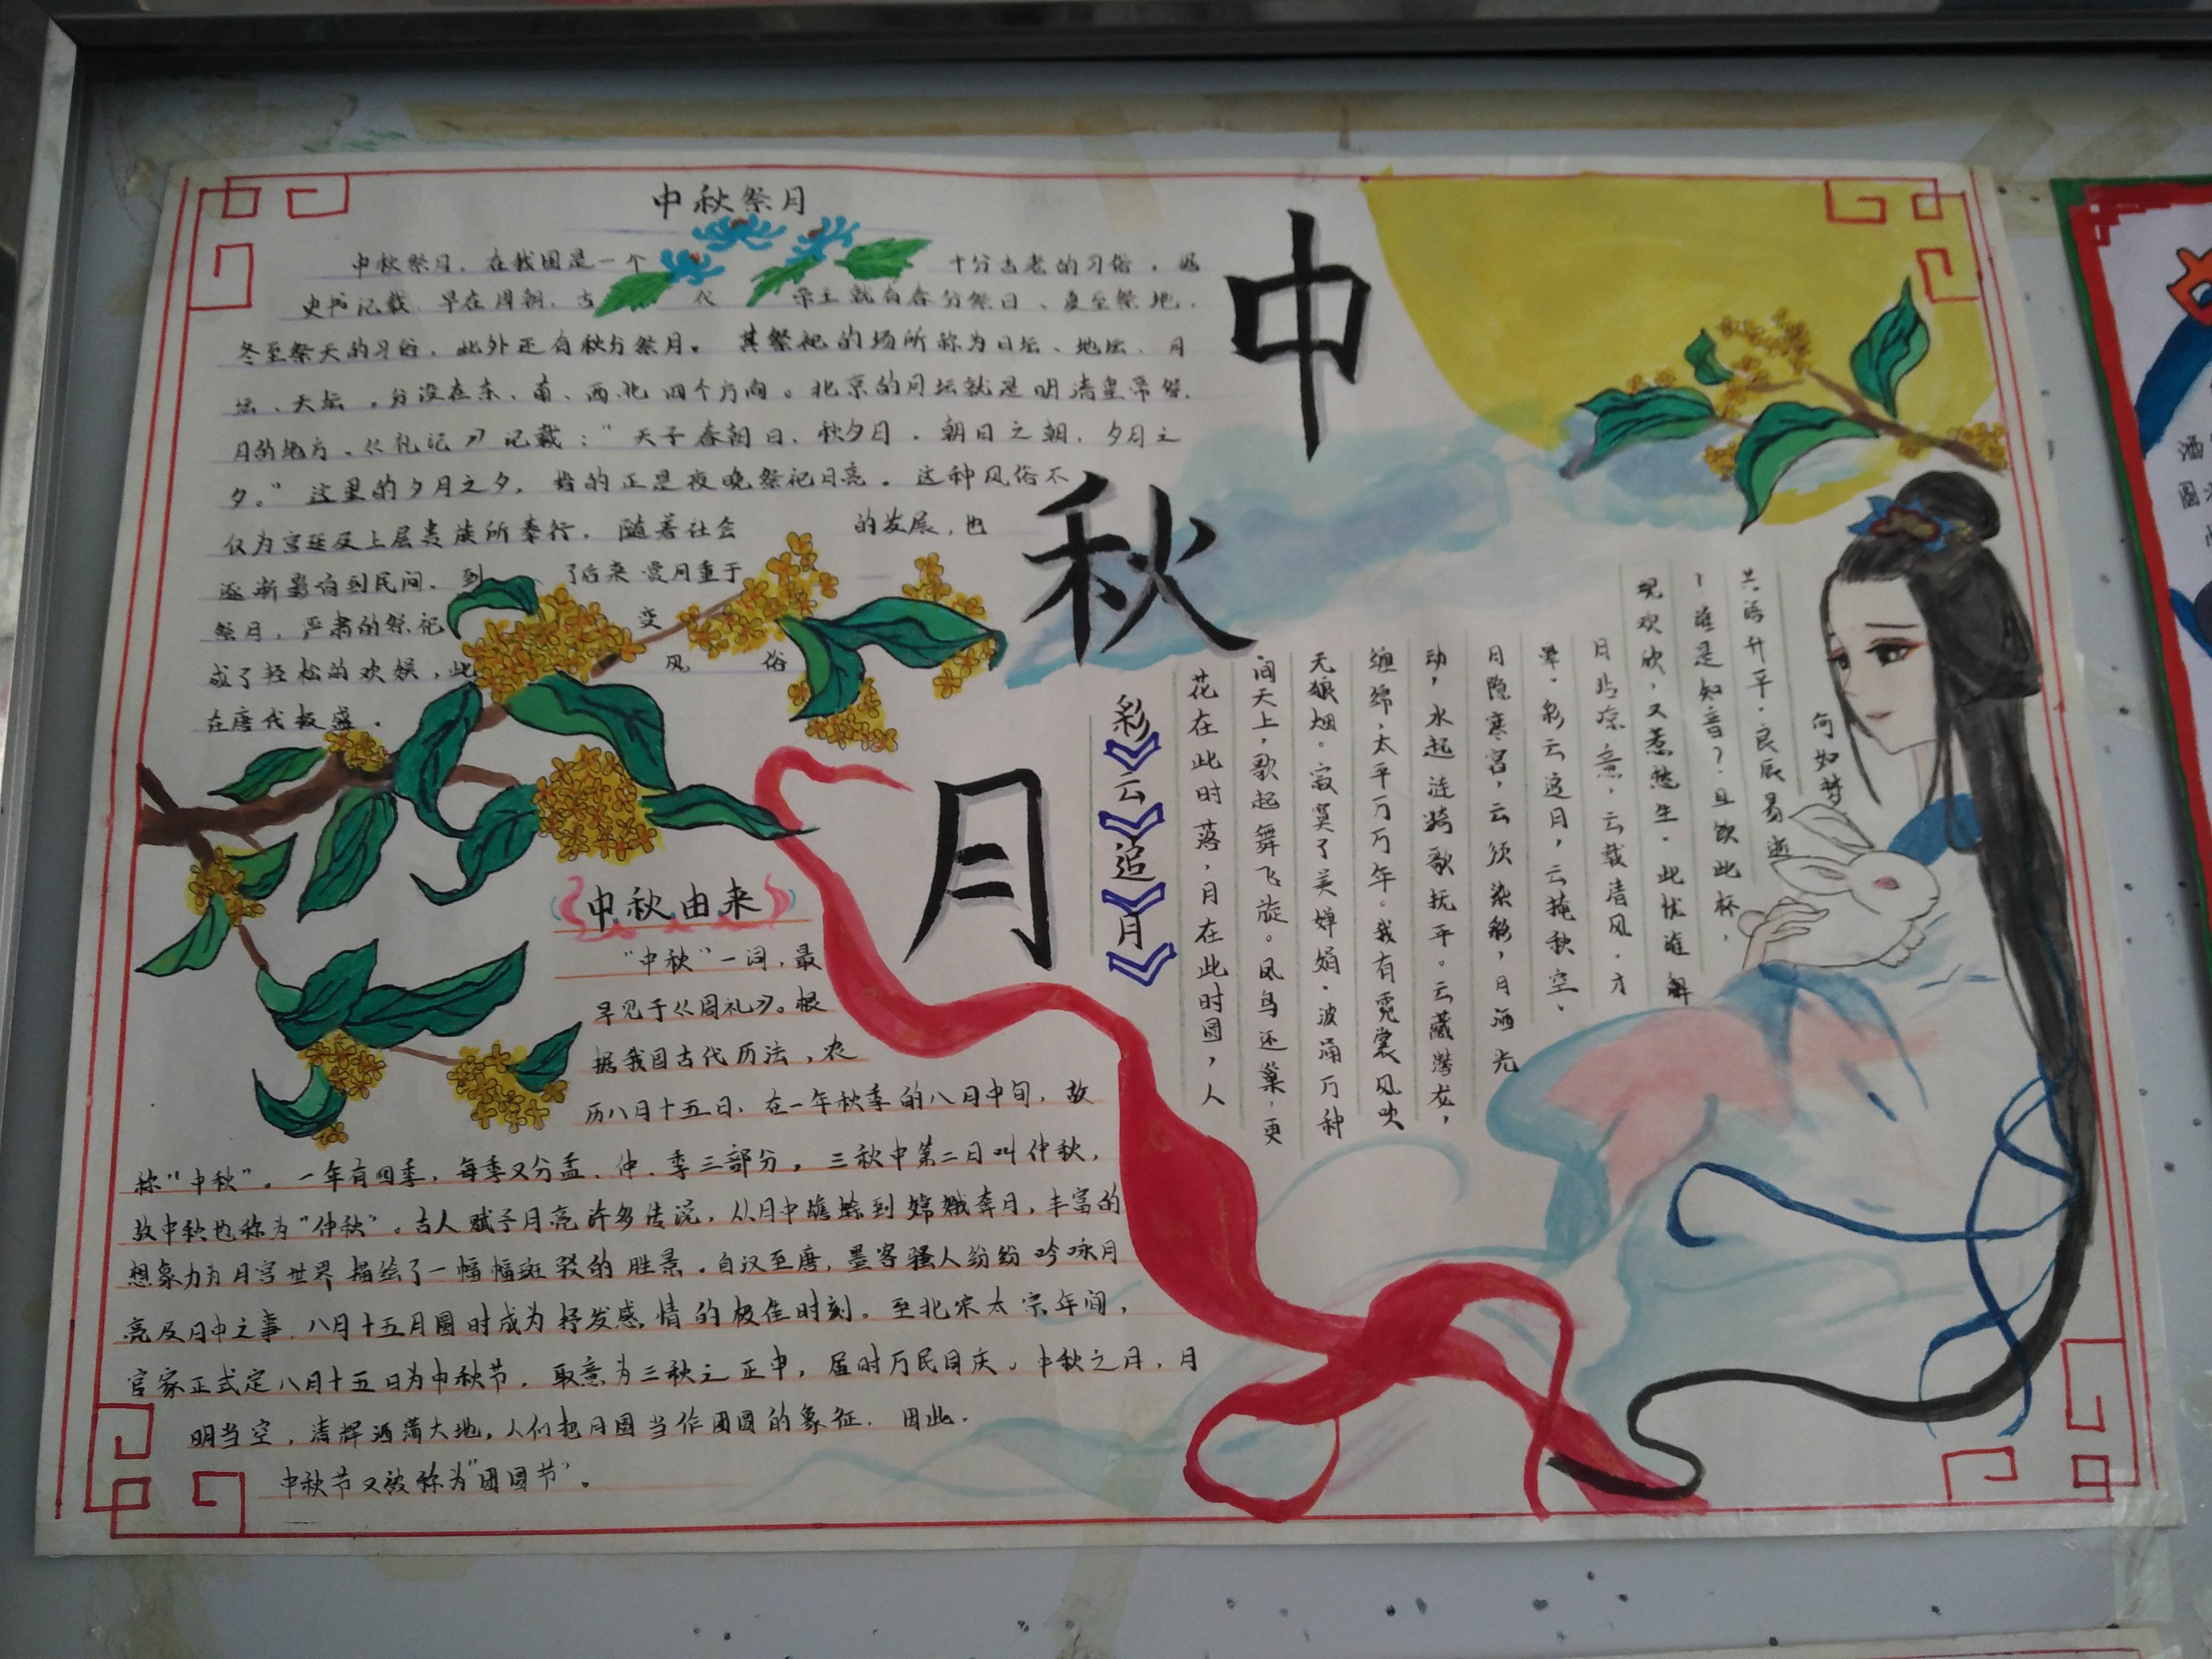 中秋祭月
中秋祭月，在我国是一个十分古老的习俗。据
史书记载，早在周朝，古代帝王就有春分祭日、夏至祭地、
冬至祭天的习俗，此外还有秋分祭月。其祭祀的场所称为日坛、地坛、月
坛、天坛。分设在东、南、西、北四个方向。北京的月坛就是明清皇帝祭
月的地方。《礼记》记载：“天子春朝日，秋夕月。朝日之朝，夕月之
夕。”这里的夕月之夕，指的正是夜晚祭祀月亮。这种风俗不
仅为宫廷及上层贵族所奉行，随着社会的发展，也
逐渐影响到民间。到了后来赏月重于
祭月，严肃的祭祀变
成了轻松的欢娱，此风俗
在唐代极盛。
中
秋
月
中秋由来
“中秋”一词，最
早见于《周礼》。根
据我国古代历法，农
历八月十五日，在一年秋季的八月中旬，故
称“中秋”。一年有四季，每季又分孟、仲、季三部分，三秋中第二月叫仲秋，
故中秋也称为“仲秋”。古人赋予月亮许多传说，从月中蟾蜍到嫦娥奔月，丰富的
想象力为月宫世界描绘了一幅幅斑驳的胜景。自汉至唐，墨客骚人纷纷吟咏月
亮及月中之事，八月十五月圆时成为抒发感情的极佳时刻。至北宋太宗年间，
官家正式定八月十五日为中秋节，取意为三秋之正中，届时万民同庆。中秋之月，月
明当空，清辉洒满大地，人们把月圆当作团圆的象征，因此，
中秋节又被称为“团圆节”。
彩云追月
花在此时落，月在此时圆，人
间天上，歌起舞飞旋。凤鸟还巢，更
无狼烟。寂寞了美婵娟。波涌万种
缠绵，太平万万年。我有霓裳风吹
动，水起涟漪歌抚平。云藏潜龙，
月隐寒宫，云须染彩，月洒光
晕。彩云逐月，云掩秋空，
月生凉意，云载清风。才
现欢欣，又惹愁生。此忧谁解
？谁是知音？且饮此杯，
共语升平。良辰易逝
何如梦
酒
圆